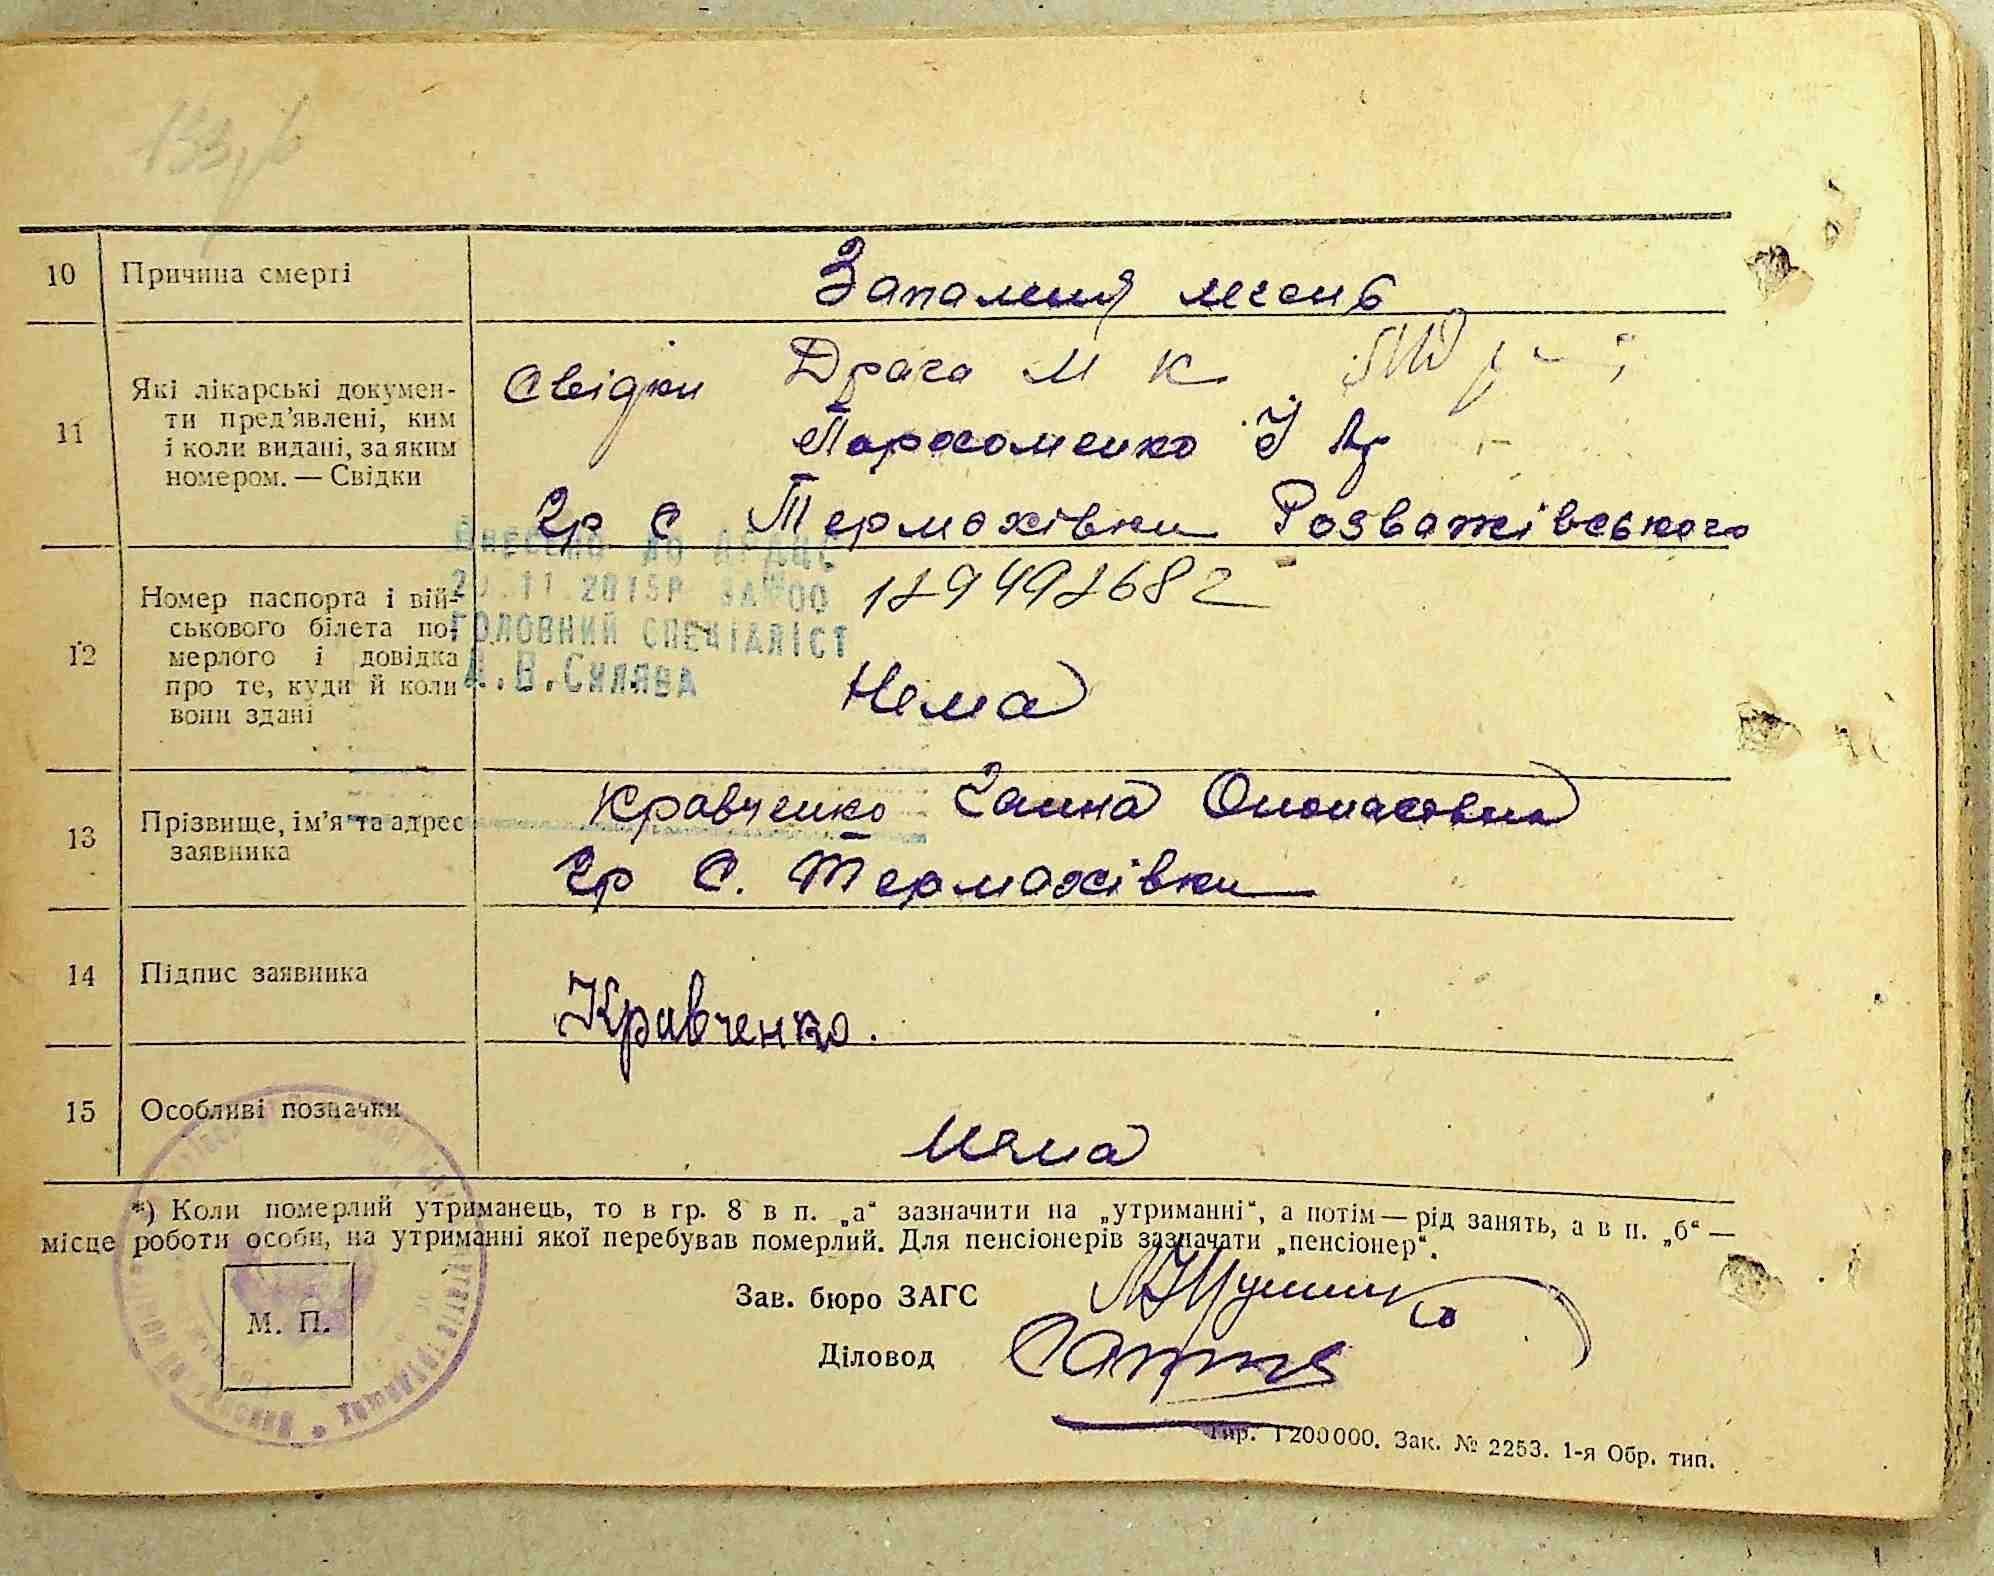 10 Причина смерті
Запаленя легень
11 Які лікарські докумен-
ти пред’явлені, ким
і коли видані, за яким
номером. — Свідки
Свідки Драга М К
Пархоменко
Гр с Термахівки Розважівського
12 Номер паспорта і вій-
ськового білета по-
мерлого і довідка
про те, куди й коли
вони здані
Внесено до
11 2015р
головний спеціаліст
В. Силява
Нема
13 Прізвище, ім’я та адрес
заявника
Кравченко Ганна
Гр С. Термахівки
14 Підпис заявника
Кравченко.
15 Особливі позначки
Няма
*) Коли померлий утриманець, то в гр. 8 в п. „а“ зазначити на „утриманні“, а потім — рід занять, а в п. „б“ —
місце роботи особи, на утриманні якої перебував померлий. Для пенсіонерів зазначати „пенсіонер“.
Зав. бюро ЗАГС
М. П.
Діловод
Тир. 1200000. Зак. № 2253. 1-я Обр. тип.